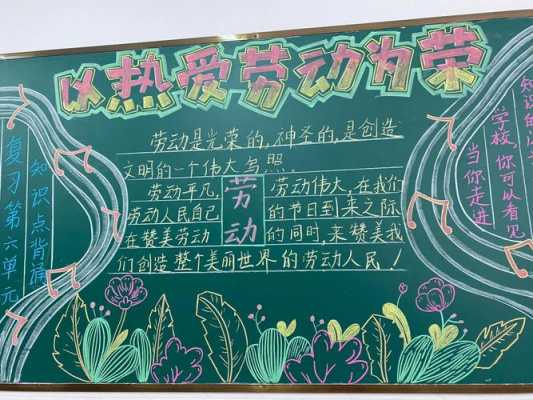 以热爱劳动为荣
劳动是光荣的,神圣的,是创造
文明的一个伟大
劳动平凡 劳动伟大,在我们
劳动人民自己 的节日到来之际
在赞美劳动 的同时,来赞美我
们创造整个美丽世界的劳动人民!
劳动
知识点背诵
复习第六单元
知识的
学校,你可以看见
当你走进